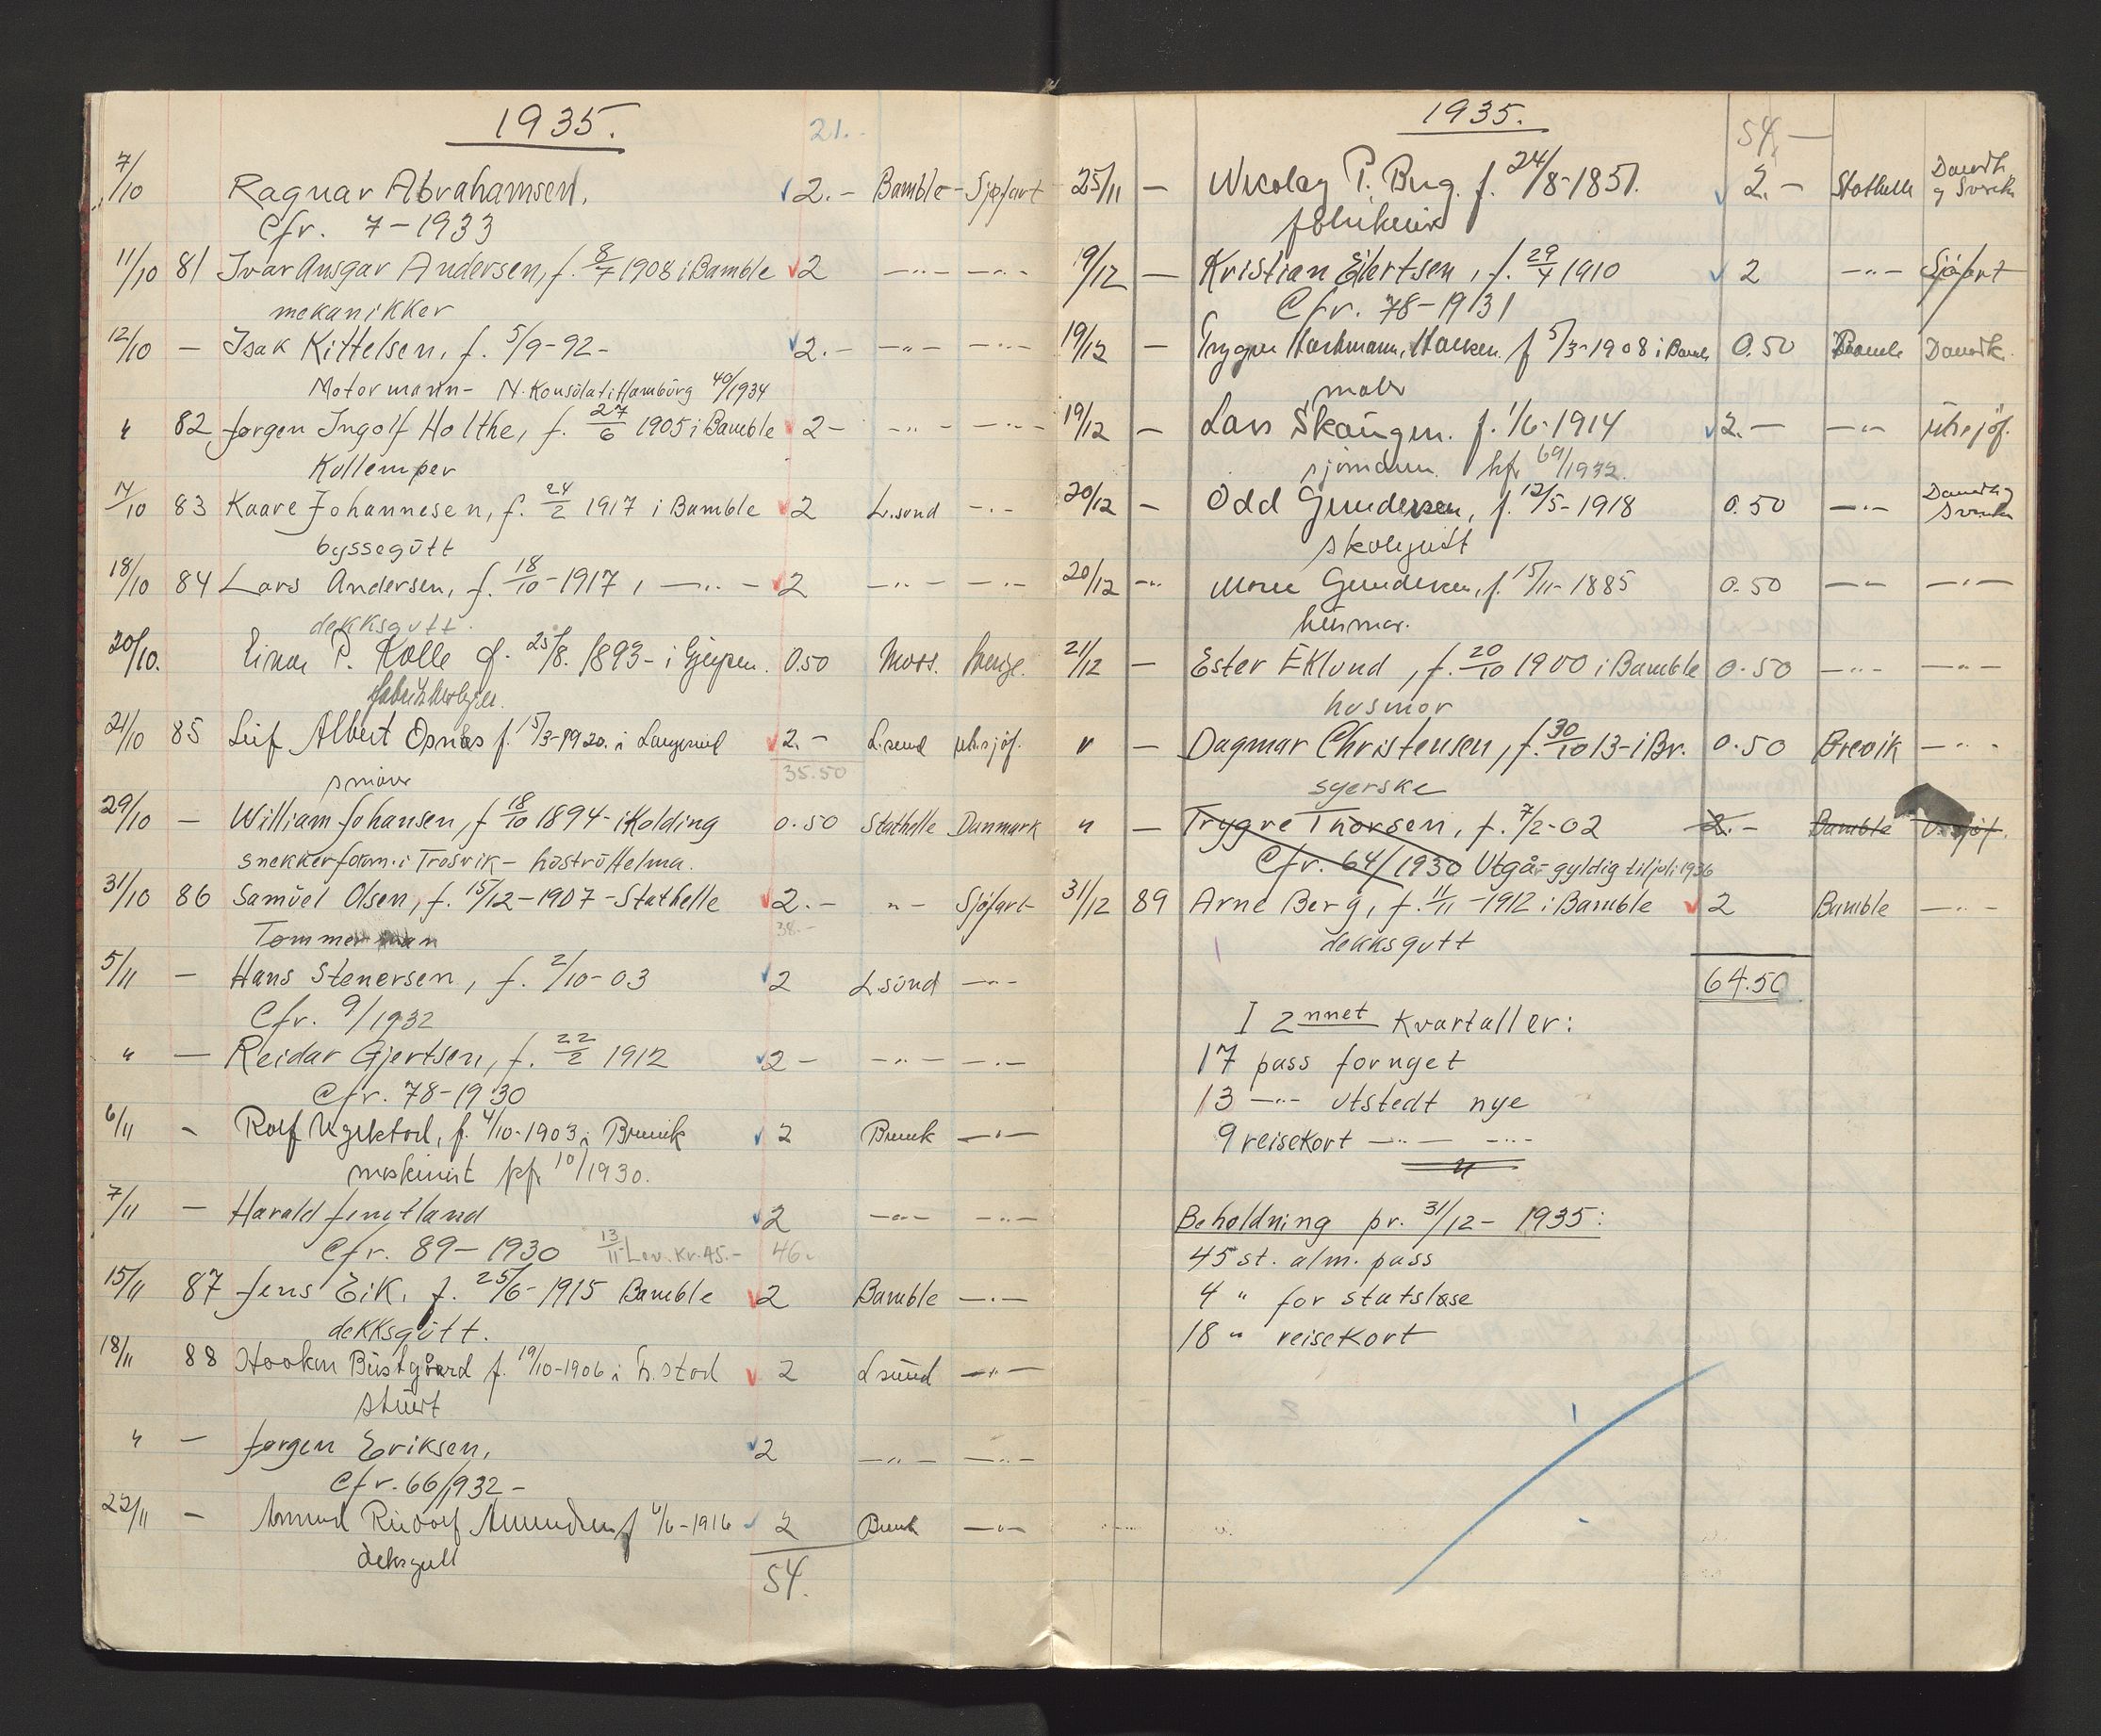 1935.
21.-
7/10 Ragnar Abrahamsen, 2.- Bamble - Sjøfart
Cfr. 7-1933
11/10 81 Ivar Ansgar Andersen, f. 8/7 1908 i Bamble 2 -"- -"-
mekanikker
12/10 - Isak Kittelsen, f. 5/9-92- 2.- -"- -"-
Motormann- N. Konsulat i Hamburg 40/1934
" 82 Jørgen Ingolf Holthe, f. 27/6 1905 i Bamble 2- -"- -"-
Kullemper
14/10 83 Kaare Johannesen, f. 24/2 1917 i Bamble 2 L.sund -"-
byssegutt
18/10 84 Lars Andersen, f. 18/10-1917, -"- 2 -"- -"-
dekksgutt.
20/10. Einar P. Kolle f. 25/8. 1893- i Gjerpen. 0.50 Moss. Sverige.
21/10 85 Leif Albert Opnæs f. 15/3-1920. i Langesund 2.- L.sund utr.sjøf.
35.50
smører
29/10 - William Johansen, f 18/10 1894- i Kolding 0.50 Stathelle Danmark
snekkerform. i Trosvik - hustru Helma.
31/10 86 Samuel Olsen, f. 15/12-1907-Stathelle 2.- "- Sjøfart
Tømmerman 38.-
5/11 - Hans Stenersen, f. 2/10-03 2 L.sund -"-
Cfr. 9/1932
" - Reidar Gjertsen, f. 22/2 1912 2- -"- -"-
Cfr. 78-1930
6/11 - Rolf f. 4/10-1903 i Brevik 2 Brevik -"-
maskinist kfr 10/1930.
7/11 - Harald Jentland 2 -"- -"-
Cfr. 89-1930 13/11 Lev. Kr. 45.- 46.
15/11 87 Jens Eik, f. 25/6-1915 Bamble 2 Bamble -"-
dekksgutt.
18/11 88 Haakon Bustgaard f. 19/10-1906 i 2 L.sund -"-
stuert
" - Jørgen Eriksen, 2 -"- -"-
Cfr. 66/1932-
22/11 - Amund Rudolf Amundsen f 6/6-1916 2 Brevik -"-
deksgutt
54.
1935.
54.-
25/11 - Nicolay P. Berg. f. 24/8-1851. 2.- Stathelle Danmk. og Sverike
fabrikeier
19/12 - Kristian Eilertsen, f. 29/4 1910 2 -"- Sjøfart
Cfr. 78-1931
19/12 - Trygve Hartmann Hansen f 5/3-1908 i Bamble 0.50 Bamble Danmk.
maler
19/12 - Lars Skaugen. f. 1/6-1914 2.- -"- utr.sjøf.
sjømann. kfr 69/1932.
20/12 - Odd Gundersen, f. 12/5-1918 0.50 -"- Danmk og Sverike
skolegutt
20/12 -"- Marie Gundersen, f. 15/11-1885 0.50 -"- -"-
husmor.
21/12 - Ester Eklund, f. 20/10 1900 i Bamble 0.50 -"- -"-
husmor
" - Dagmar Christensen, f. 30/10 13- i Br. 0.50 Brevik -"-
syerske
" - Trygve Thorsen, f. 7/2-02 2.- Bamble U.sjøf.
Cfr. 64/1930 Utgår- gyldig til juli 1936
31/12 89 Arne Berg, f. 11/11-1912 i Bamble 2 Bamble -"-
dekksgutt
64.50
I 2nnet Kvartaller:
17 pass fornyet
13 -"- utstedt nye
9 reisekort -"- -"-
Beholdning pr. 31/12- 1935:
45 st. alm. pass
4 " for statsløse
18 " reisekort